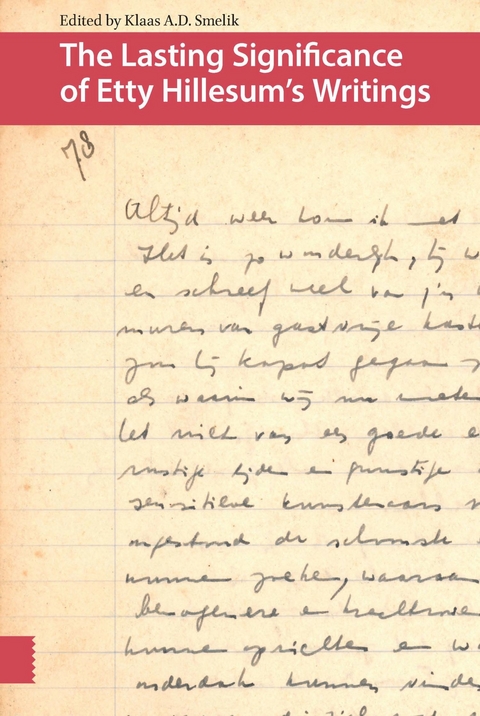 Edited by Klaas A.D. Smelik
The Lasting Significance
of Etty Hillesum's Writings
78
Altijd weer kom ik met
Het is zo wonderlijk, hij w
en schreef veel van z'n
muren van gastvrije kaste
zou hij kapot gegaan z
als waarin wij nu moeten
Het van een goede e
rustige tijden en gunstige
sensitieve kunstenaars
ongestoord de schoonste
kunnen zoeken, waaraan
bewogenere en
kunnen oprichten en wa
onderdak kunnen vinden